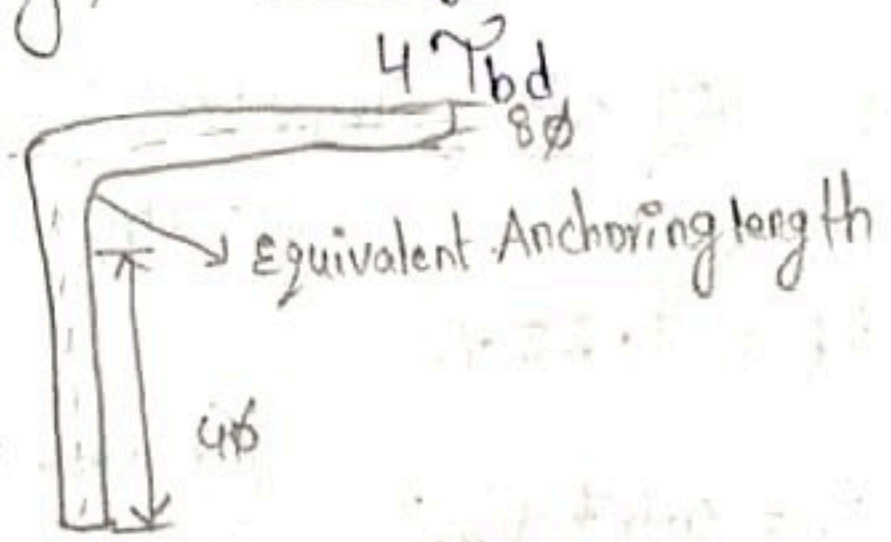 4 τbd
8ϕ
Equivalent Anchoring length
4ϕ